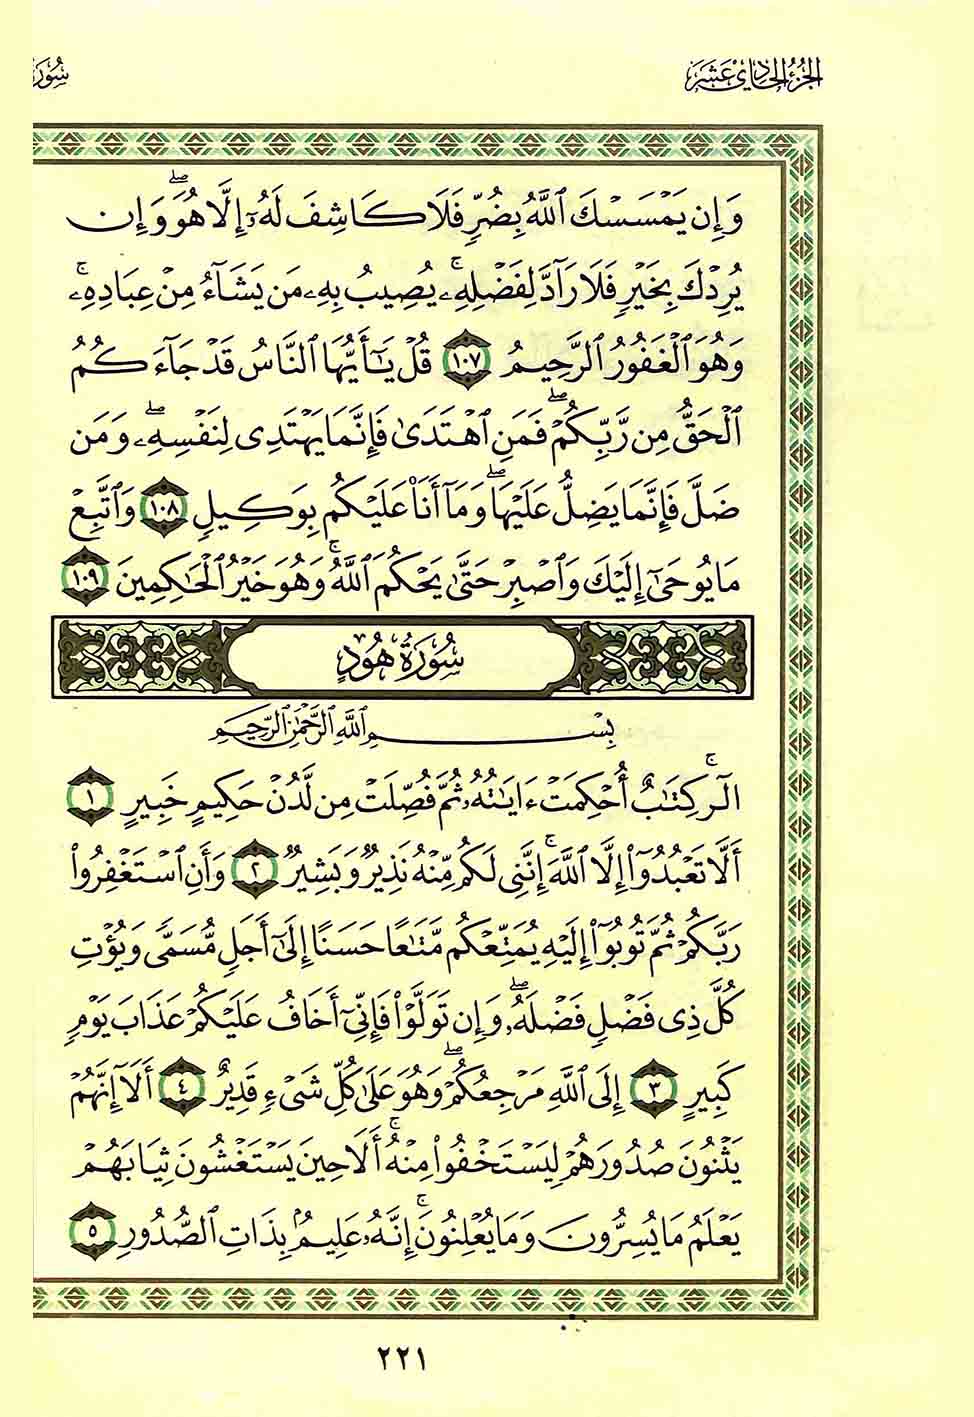 الجزء الحادي عشر
سور
وَإِن يَمْسَسْكَ ٱللَّهُ بِضُرٍّ فَلَا كَاشِفَ لَهُۥٓ إِلَّا هُوَۖ وَإِن
يُرِدْكَ بِخَيْرٍ فَلَا رَآدَّ لِفَضْلِهِۦۚ يُصِيبُ بِهِۦ مَن يَشَآءُ مِنْ عِبَادِهِۦۚ
وَهُوَ ٱلْغَفُورُ ٱلرَّحِيمُ ١٠٧ قُلْ يَـٰٓأَيُّهَا ٱلنَّاسُ قَدْ جَآءَكُمُ
ٱلْحَقُّ مِن رَّبِّكُمْۖ فَمَنِ ٱهْتَدَىٰ فَإِنَّمَا يَهْتَدِى لِنَفْسِهِۦۖ وَمَن
ضَلَّ فَإِنَّمَا يَضِلُّ عَلَيْهَاۖ وَمَآ أَنَا۠ عَلَيْكُم بِوَكِيلٍ ١٠٨ وَٱتَّبِعْ
مَا يُوحَىٰٓ إِلَيْكَ وَٱصْبِرْ حَتَّىٰ يَحْكُمَ ٱللَّهُۚ وَهُوَ خَيْرُ ٱلْحَـٰكِمِينَ ١٠٩
سُورَةُ هُودٍ
بِسْمِ ٱللَّهِ ٱلرَّحْمَـٰنِ ٱلرَّحِيمِ
الٓرۚ كِتَـٰبٌ أُحْكِمَتْ ءَايَـٰتُهُۥ ثُمَّ فُصِّلَتْ مِن لَّدُنْ حَكِيمٍ خَبِيرٍ ١
أَلَّا تَعْبُدُوٓا۟ إِلَّا ٱللَّهَۚ إِنَّنِى لَكُم مِّنْهُ نَذِيرٌ وَبَشِيرٌ ٢ وَأَنِ ٱسْتَغْفِرُوا۟
رَبَّكُمْ ثُمَّ تُوبُوٓا۟ إِلَيْهِ يُمَتِّعْكُم مَّتَـٰعًا حَسَنًا إِلَىٰٓ أَجَلٍ مُّسَمًّى وَيُؤْتِ
كُلَّ ذِى فَضْلٍ فَضْلَهُۥۖ وَإِن تَوَلَّوْا۟ فَإِنِّىٓ أَخَافُ عَلَيْكُمْ عَذَابَ يَوْمٍ
كَبِيرٍ ٣ إِلَى ٱللَّهِ مَرْجِعُكُمْۖ وَهُوَ عَلَىٰ كُلِّ شَىْءٍ قَدِيرٌ ٤ أَلَآ إِنَّهُمْ
يَثْنُونَ صُدُورَهُمْ لِيَسْتَخْفُوا۟ مِنْهُۚ أَلَا حِينَ يَسْتَغْشُونَ ثِيَابَهُمْ
يَعْلَمُ مَا يُسِرُّونَ وَمَا يُعْلِنُونَۚ إِنَّهُۥ عَلِيمٌۢ بِذَاتِ ٱلصُّدُورِ ٥
٢٢١